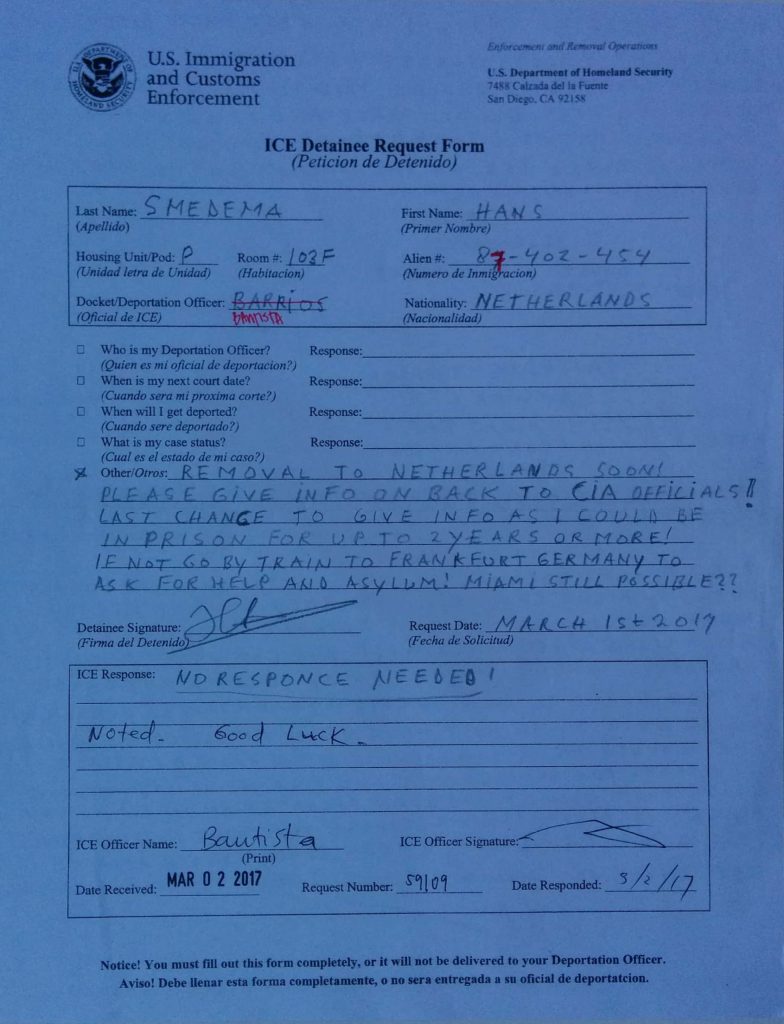 U.S. Immigration
and Customs
Enforcement
Enforcement and Removal Operations
U.S. Department of Homeland Security
7488 Calzada del la Fuente
San Diego, CA 92158
U.S. DEPARTMENT OF HOMELAND SECURITY
ICE Detainee Request Form
(Peticion de Detenido)
Last Name: SMEDEMA First Name: HANS
(Apellido) (Primer Nombre)
Housing Unit/Pod: P Room #: 103F Alien #: 87-402-454
(Unidad letra de Unidad) (Habitacion) (Numero de Inmigracion)
Docket/Deportation Officer: BARRIOS Nationality: NETHERLANDS
(Oficial de ICE) BAUTISTA (Nacionalidad)
Who is my Deportation Officer? Response:
(Quien es mi oficial de deportacion?)
When is my next court date? Response:
(Cuando sera mi proxima corte?)
When will I get deported? Response:
(Cuando sere deportado?)
What is my case status? Response:
(Cual es el estado de mi caso?)
Other/Otros: REMOVAL TO NETHERLANDS SOON!
PLEASE GIVE INFO ON BACK TO CIA OFFICIALS!!
LAST CHANGE TO GIVE INFO AS I COULD BE
IN PRISON FOR UP TO 2 YEARS OR MORE!
IF NOT GO BY TRAIN TO FRANKFURT GERMANY TO
ASK FOR HELP AND ASYLUM! MIAMI STILL POSSIBLE??
Detainee Signature: Request Date: MARCH 1st 2017
(Firma del Detenido) (Fecha de Solicitud)
ICE Response: NO RESPONCE NEEDED!
Noted. Good Luck.
ICE Officer Name: Bautista ICE Officer Signature:
(Print)
Date Received: MAR 02 2017 Request Number: 59109 Date Responded: 3/2/17
Notice! You must fill out this form completely, or it will not be delivered to your Deportation Officer.
Aviso! Debe llenar esta forma completamente, o no sera entregada a su oficial de deportatcion.